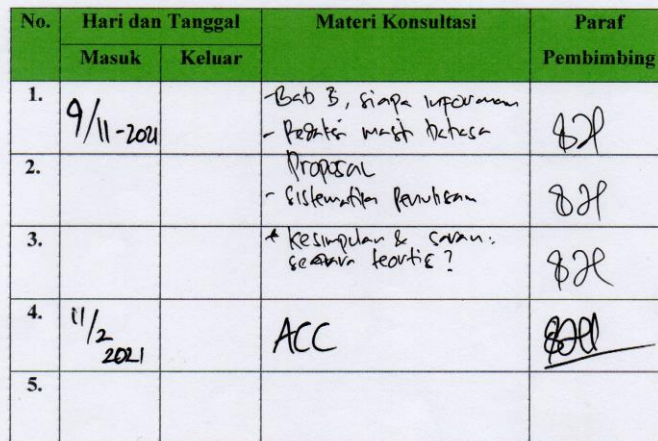 No. Hari dan Tanggal Materi Konsultasi Paraf
Masuk Keluar Pembimbing
1. 9/11-2021 - Bab 3, siapa informan
- Redaksi masih bahasa
2. Proposal
- Sistematika Penulisan
3. * Kesimpulan & saran:
secara teortis ?
4. 11/2 2021 ACC
5.